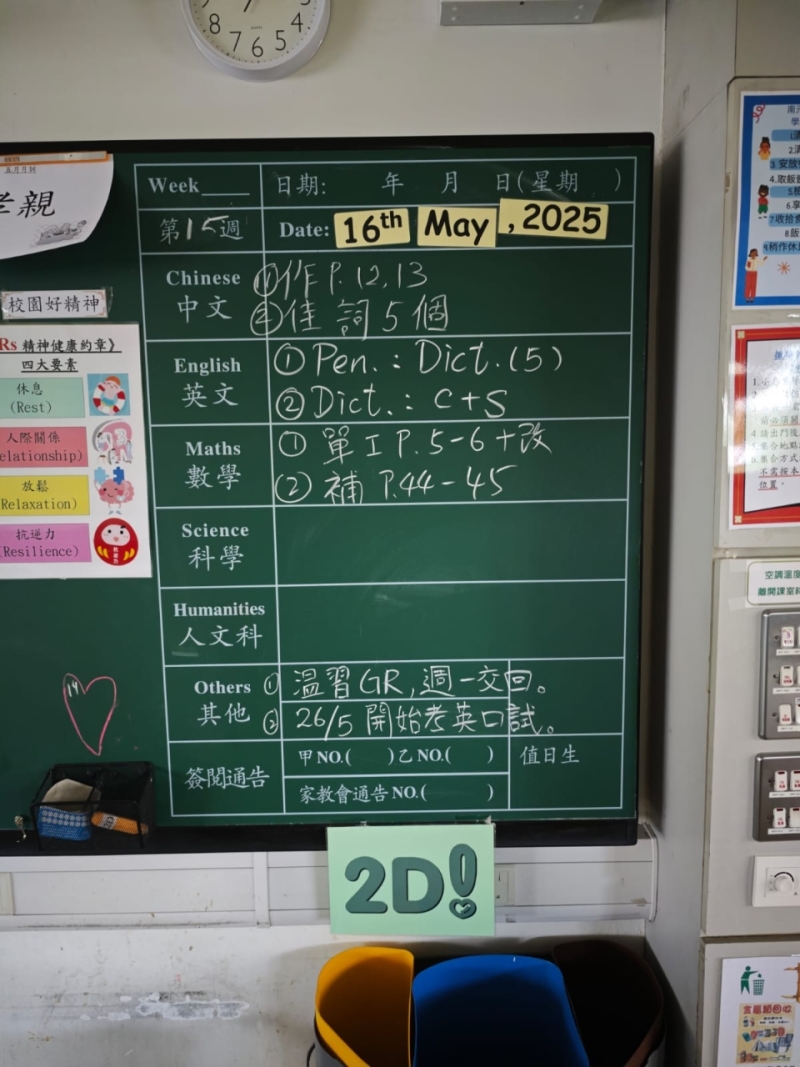 8 7 6 5 4
五月月訓
孝親
校園好精神
Rs 精神健康約章》
四大要素
休息
(Rest)
人際關係
elationship)
放鬆
Relaxation)
抗逆力
(Resilience)
14
Week____
日期: 年 月 日(星期 )
第15週
Date: 16th May , 2025
Chinese
中文
①作 P. 12, 13
②佳詞5個
English
英文
① Pen. : Dict. (5)
② Dict. : C+S
Maths
數學
① 單工 P. 5-6 + 改
② 補 P.44-45
Science
科學
Humanities
人文科
Others
其他
① 溫習 GR, 週一交回。
② 26/5 開始考英口試。
簽閱通告
甲NO.( )乙NO.( )
家教會通告NO.( )
值日生
2D!
4.取飯
8.飯
空調溫度
離開課室